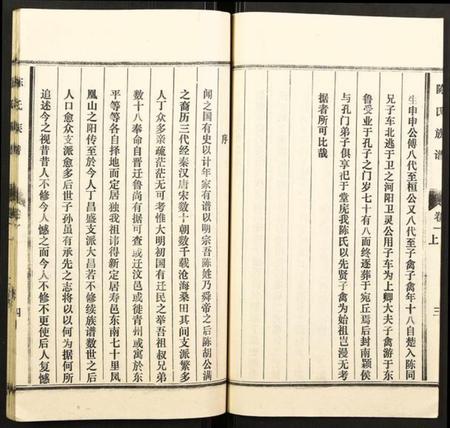 陈氏族谱 卷一上 三
生申申公傅八代至桓公又八代至子禽子禽年十八自楚入陈同
兄子车北逃于卫之河阳卫灵公用子车为上卿大夫子禽游于东
鲁受业于孔子之门岁七十有八而终遂葬于宛丘焉后封南颍侯
与孔门弟子俱享祀于堂庑我陈氏以先贤子禽为始祖岂漫无考
据者所可比哉
序
闻之国有史以计年家有谱以明宗吾陈姓乃舜帝之后陈胡公满
之裔历三代经秦汉唐宋数十朝数千载沧海桑田其间支派繁多
人丁众多亲疏茫茫无可考惟大明初国有迁民之举吾祖叔兄弟
数十八奉命自晋迁鲁尚有据可查或迁汶邑或徙青州或寓於东
平等等各自择地而定居独我祖讳得新定居寿邑东南七十里凤
凰山之阳传至於今人丁昌盛支派大昌若不修续族谱数世之后
人口愈众支派愈多后世子孙虽有承先之志将以以何为据何所
追述今之视昔昔人不修今人憾之而今人不修不更使后人复憾
四